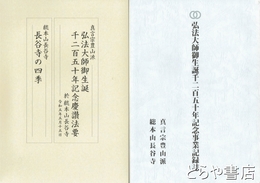 弘法大師御生誕千二百五十年記念事業記録集
真言宗豊山派
総本山長谷寺
真言宗豊山派
弘法大師御生誕
千二百五十年記念慶讃法要
於 総本山長谷寺
総本山長谷寺
長谷寺の四季
とらや書店